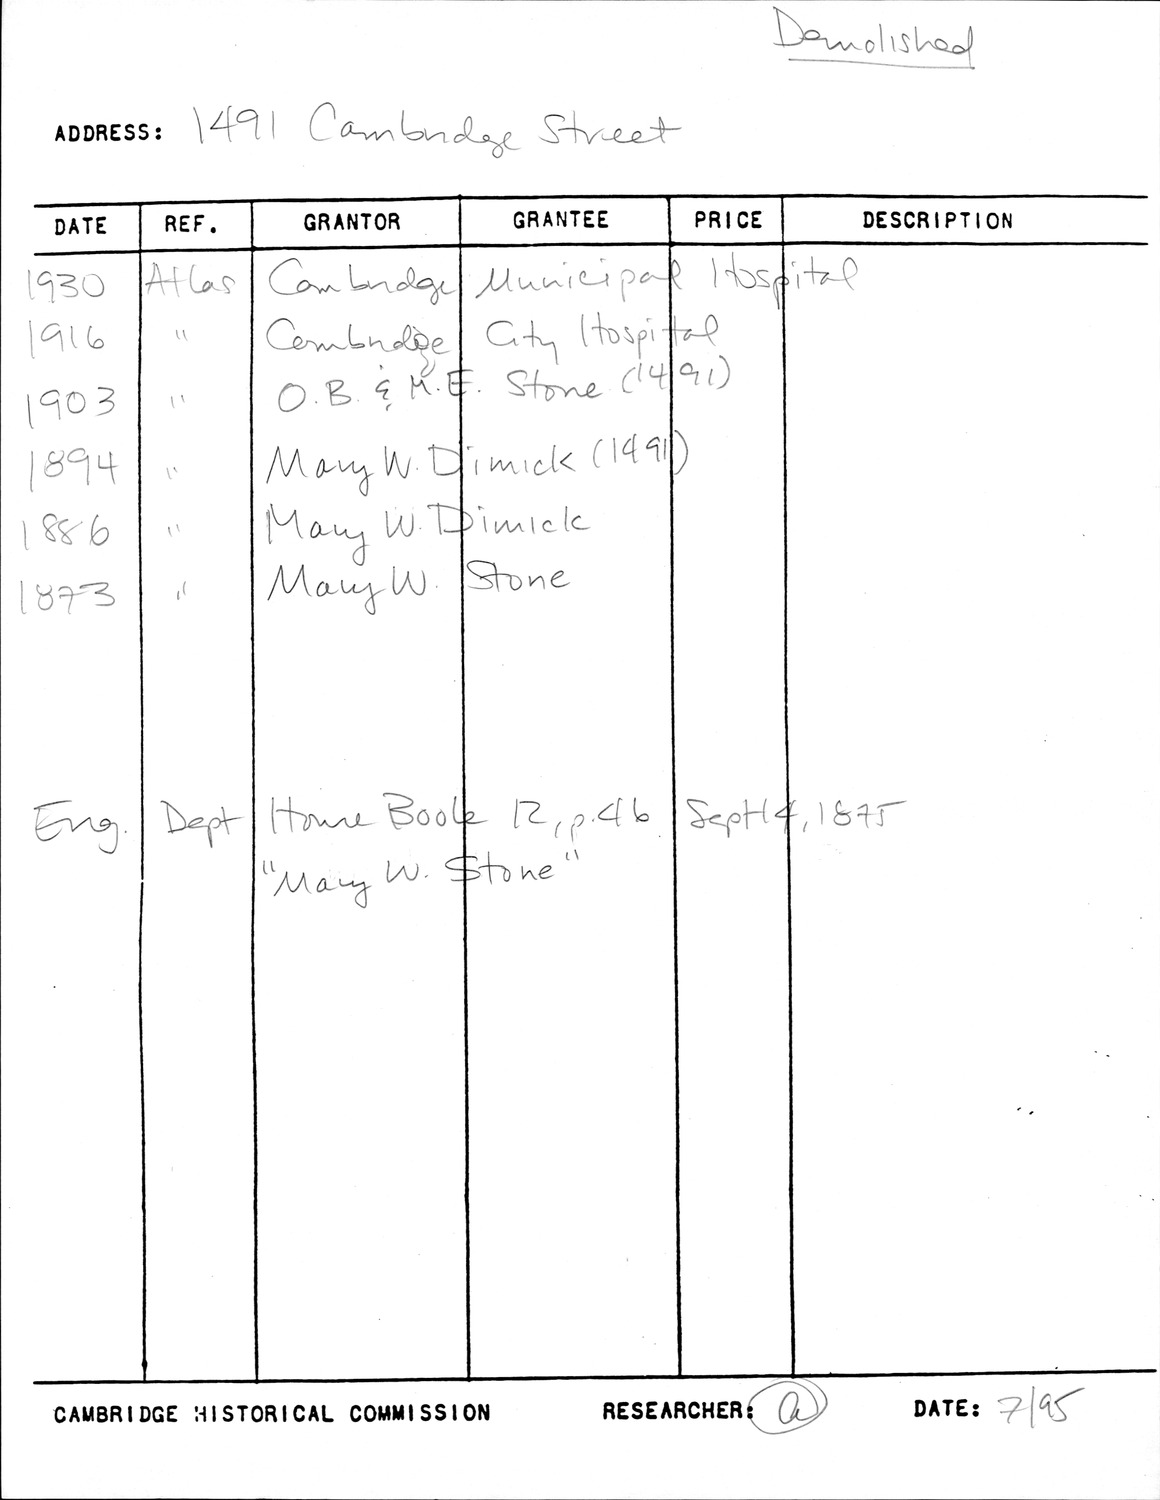 Demolished
ADDRESS: 1491 Cambridge Street
DATE REF. GRANTOR GRANTEE PRICE DESCRIPTION
1930 Atlas Cambridge Municipal Hospital
1916 " Cambridge City Hospital
1903 " O.B. & M.E. Stone (1491)
1894 " Mary W. Dimick (1491)
1886 " Mary W. Dimick
1873 " Mary W. Stone
Eng. Dept House Book 12, p.46 Sept 14, 1875
"Mary W. Stone"
CAMBRIDGE HISTORICAL COMMISSION RESEARCHER: DATE: 7/95